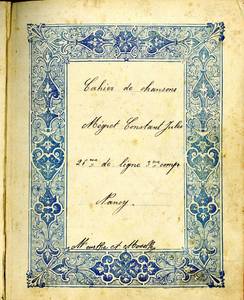 Cahier de chansons
Mégret Constant Jules
26me de ligne 3me comp
Nancy.
Meurthe et Moselle